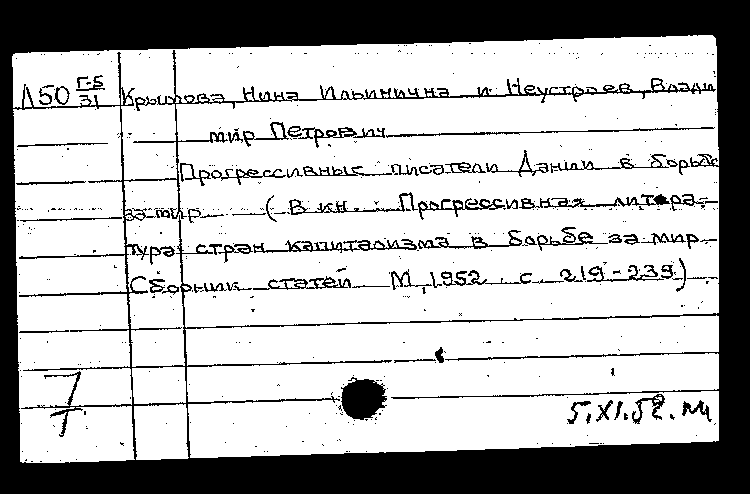 Л50 Г-5/31 Крымова, Нина Ильинична и Неустроев, Влади
мир Петрович
Прогрессивные писатели Дании в борьбе
за мир (В кн.: Прогрессивная литера-
тура стран капитализма в борьбе за мир.
Сборник статей М, 1952. с. 219-239)
7
5.XI.52.